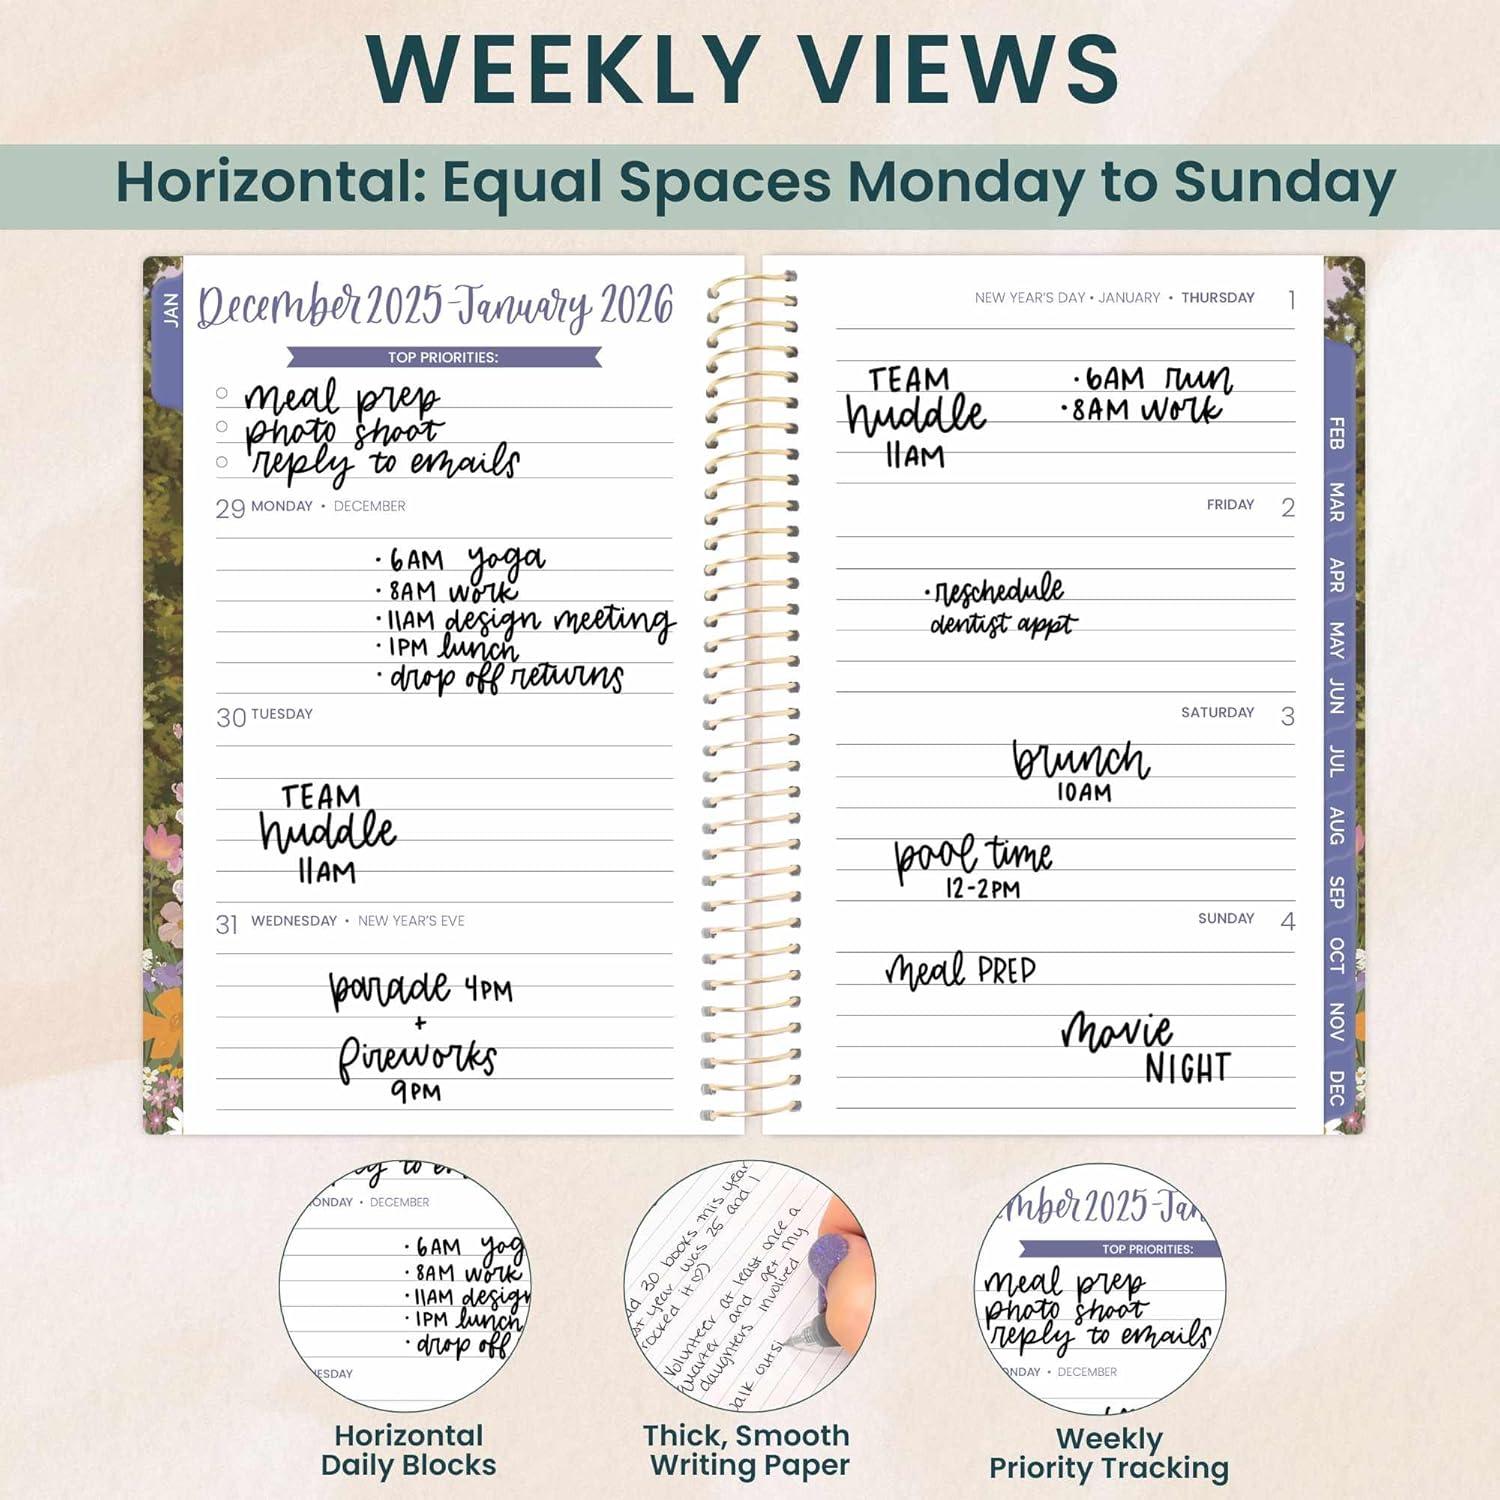 WEEKLY VIEWS
Horizontal: Equal Spaces Monday to Sunday
JAN
December 2025-January 2026
TOP PRIORITIES:
meal prep
photo shoot
reply to emails
29 MONDAY • DECEMBER
• 6AM yoga
• 8AM work
• 11AM design meeting
• 1PM lunch
• drop off returns
30 TUESDAY
TEAM
huddle
11AM
31 WEDNESDAY • NEW YEAR'S EVE
parade 4PM
+
fireworks
9PM
NEW YEAR'S DAY • JANUARY • THURSDAY 1
TEAM
huddle
11AM
• 6AM run
• 8AM work
FRIDAY 2
• reschedule
dentist appt
SATURDAY 3
brunch
10AM
pool time
12-2PM
SUNDAY 4
meal PREP
movie
NIGHT
FEB
MAR
APR
MAY
JUN
JUL
AUG
SEP
OCT
NOV
DEC
ONDAY • DECEMBER
• 6AM yog
• 8AM work
• 11AM design
• 1PM lunch
• drop off
ESDAY
Horizontal
Daily Blocks
30 books this year
year was 25 and I
rocked it
Volunteer at least once a
quarter and get my
daughters involved
alk outsi
Thick, Smooth
Writing Paper
mber 2025-Jan
TOP PRIORITIES:
meal prep
photo shoot
reply to emails
NDAY • DECEMBER
Weekly
Priority Tracking